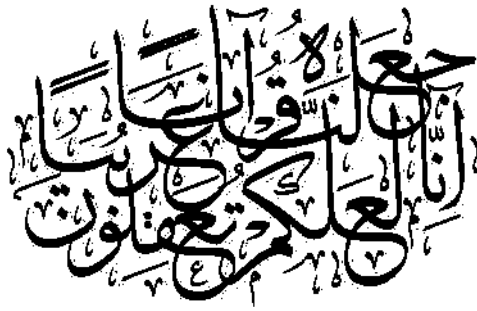 إنّا جعلنه قرآناً عربياً لعلكم تعقلون